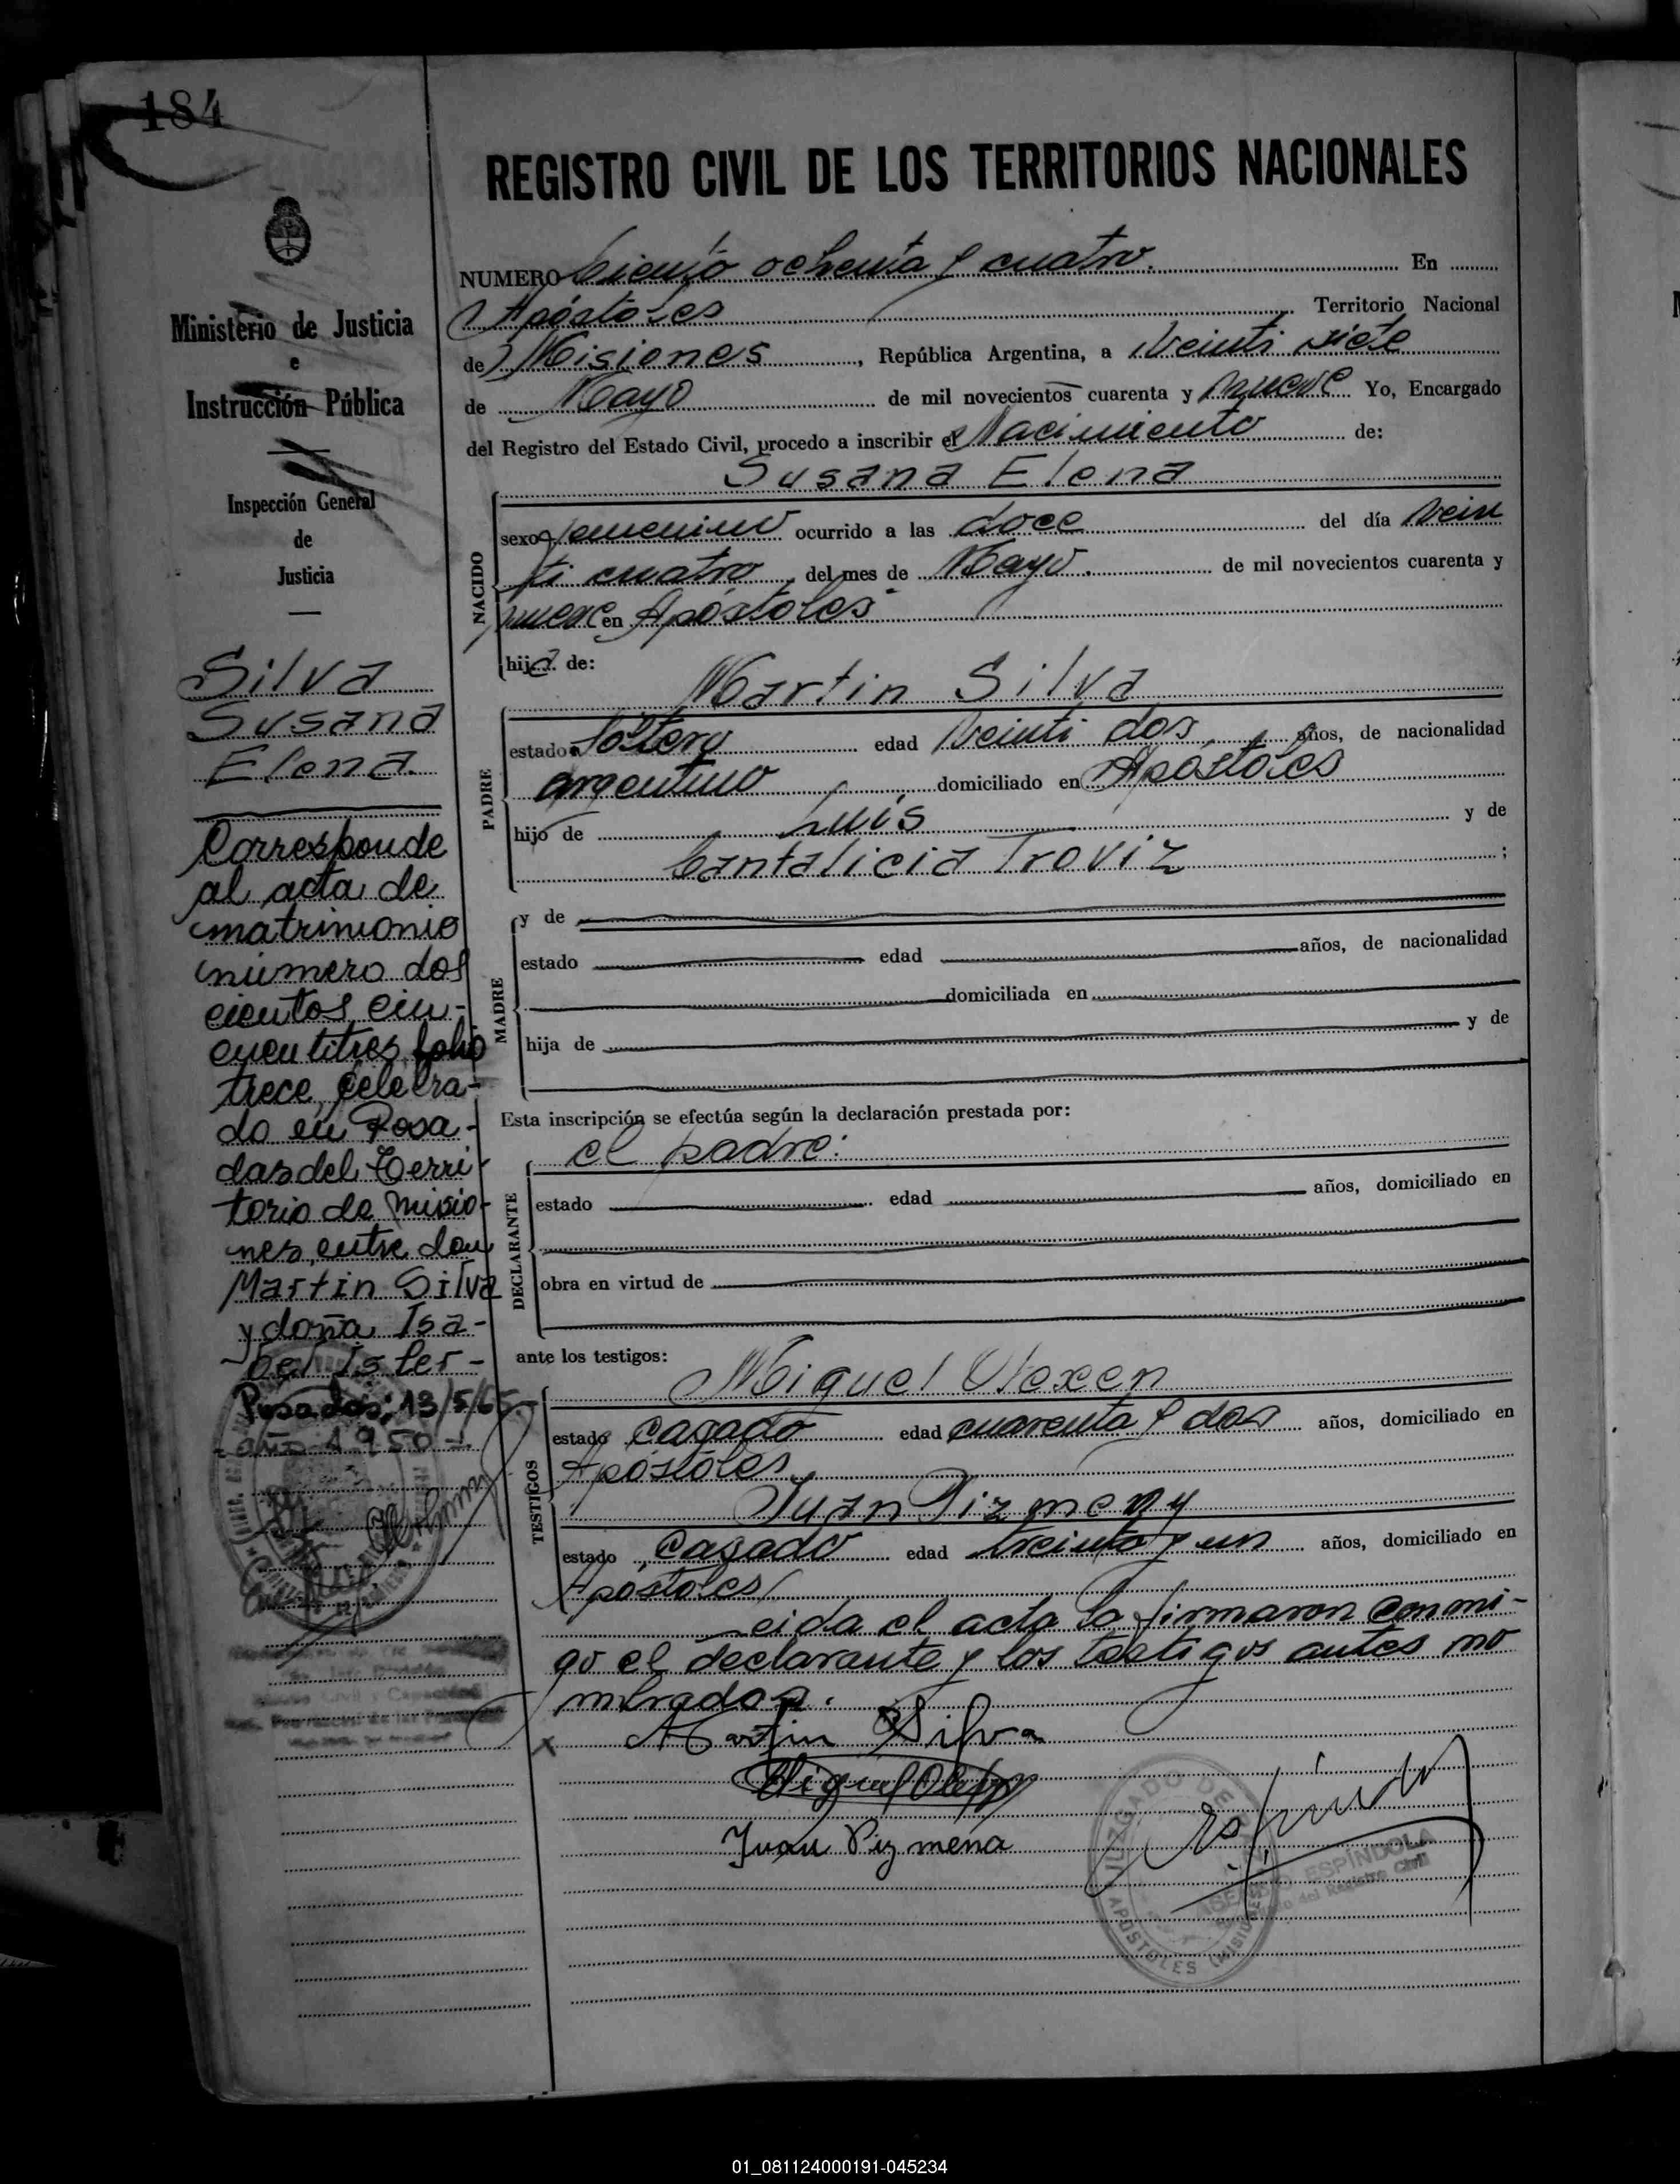 184
REGISTRO CIVIL DE LOS TERRITORIOS NACIONALES
Ministerio de Justicia
e
Instrucción Pública
Inspección General
de
Justicia
Silva
Susana
Elena.
Corresponde
al acta de
matrimonio
número dos
cientos cin-
cuentitres folio
trece, celebra-
do en Posa-
das del Terri-
torio de Misio-
nes, entre don
Martin Silva
y doña Isa-
bel Ister-
Posadas, 13/5/65
año 1950
NUMERO Ciento ochenta y cuatro. En
Apóstoles Territorio Nacional
de Misiones, República Argentina, a veinti siete
de Mayo de mil novecientos cuarenta y nueve Yo, Encargado
del Registro del Estado Civil, procedo a inscribir el Nacimiento de:
Susana Elena
NACIDO
sexo femenino ocurrido a las doce del día vein
ti cuatro, del mes de Mayo. de mil novecientos cuarenta y
nueve en Apóstoles
hija de:
Martin Silva
PADRE
estado soltero edad veinti dos, años, de nacionalidad
argentino domiciliado en Apóstoles
hijo de Luis y de
Cantalicia Troviz;
MADRE
y de
estado edad años, de nacionalidad
domiciliada en
hija de y de
Esta inscripción se efectúa según la declaración prestada por:
el padre:
DECLARANTE
estado edad años, domiciliado en
obra en virtud de
ante los testigos:
Miguel Olexen
TESTIGOS
estado casado edad cuarenta y dos años, domiciliado en
Apóstoles
Juan Pizmeny
estado casado edad treinta y un años, domiciliado en
Apóstoles
Leida el acta la firmaron conmi-
go el declarante y los testigos antes no
mbrados.
x Martin Silva
Miguel
Juan Pizmena
JUZGADO DE
APOSTOLES (MISIONES)
ESPÍNDOLA
del Registro Civil
01_081124000191-045234